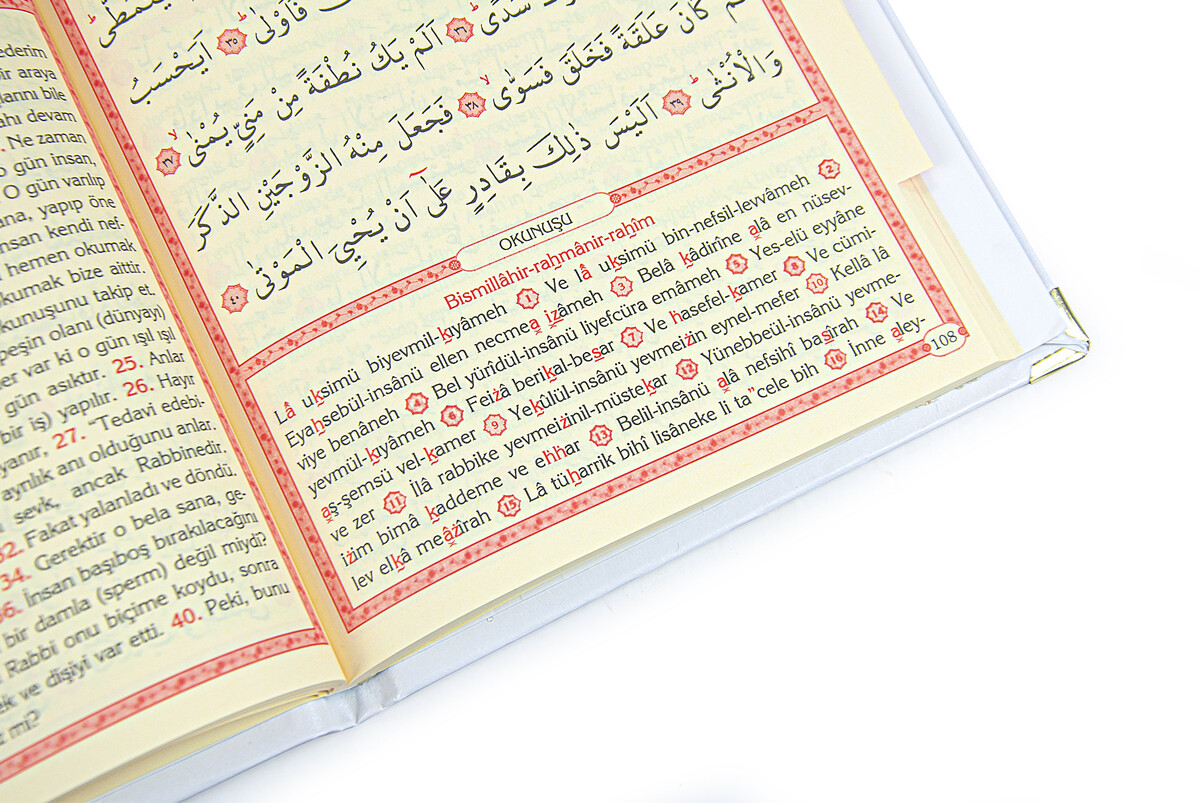 ederim
bir araya
larını bile
ahı devam
. Ne zaman
o gün insan,
O gün varılıp
ana, yapıp öne
insan kendi nef-
hemen okumak
kumak bize aittir.
kunuşunu takip et.
peşin olanı (dünyayı)
er var ki o gün ışıl ışıl
gün asıktır. 25. Anlar
bir iş) yapılır. 26. Hayır
yanır, 27. “Tedavi edebi-
ayrılık anı olduğunu anlar.
sevk, ancak Rabbinedir.
32. Fakat yalanladı ve döndü.
34. Gerektir o bela sana, ge-
36. İnsan başıboş bırakılacağını
bir damla (sperm) değil miydi?
Rabbi onu biçime koydu, sonra
ek ve dişiyi var etti. 40. Peki, bunu
z mi?
يَتَمَطّٰى ﴿٣٣﴾ فَاَوْلٰى ﴿٣٥﴾ اَيَحْسَبُ
سُدًى ﴿٣٦﴾ اَلَمْ يَكُ نُطْفَةً مِنْ مَنِيٍّ يُمْنٰى ﴿٣٧﴾
كَانَ عَلَقَةً فَخَلَقَ فَسَوّٰى ﴿٣٨﴾ فَجَعَلَ مِنْهُ الزَّوْجَيْنِ الذَّكَرَ
وَالْاُنْثٰى ﴿٣٩﴾ اَلَيْسَ ذٰلِكَ بِقَادِرٍ عَلٰٓى اَنْ يُحْيِيَ الْمَوْتٰى ﴿٤٠﴾
OKUNUŞU
Bismillâhir-rahmânir-rahîm
Lâ uksimü biyevmil-kıyâmeh 1 Ve lâ uksimü bin-nefsil-levvâmeh 2
Eyahsebül-insânü ellen necmea izâmeh 3 Belâ kâdirîne alâ en nüsev-
viye benâneh 4 Bel yürîdül-insânü liyefcüra emâmeh 5 Yes-elü eyyâne
yevmül-kıyâmeh 6 Feizâ berikal-besar 7 Ve hasefel-kamer 8 Ve cümi-
aş-şemsü vel-kamer 9 Yekûlül-insânü yevmeizin eynel-mefer 10 Kellâ lâ
ve zer 11 İlâ rabbike yevmeizinil-müstekar 12 Yünebbeül-insânü yevme-
izim bimâ kaddeme ve ehhar 13 Belil-insânü alâ nefsihî basîrah 14 Ve
lev elkâ meâzîrah 15 Lâ tüharrik bihî lisâneke li ta”cele bih 16 İnne aley-
108